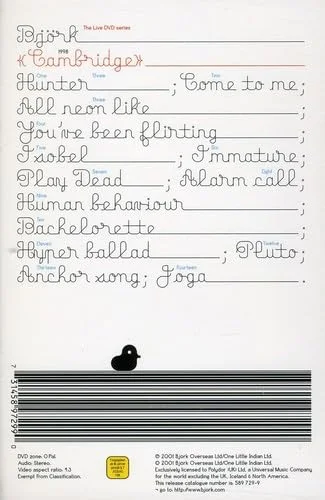 Björk The Live DVD series
1998
«Cambridge»
One Three Two
Hunter ; Come to me;
Three
All neon like ;
Four
You've been flirting ;
Five Six
Isobel ; Immature;
Seven Eight
Play Dead ; Alarm call;
Nine
Human behaviour ;
Ten
Bachelorette ;
Eleven Twelve
Hyper ballad ; Pluto;
Thirteen Fourteen
Anchor song; Joga .
7 31458 97299 0
DVD zone: 0 Pal.
Audio: Stereo.
Video aspect ratio: 4:3
Exempt from Classification.
℗ 2001 Bjork Overseas Ltd/One Little Indian Ltd.
© 2001 Bjork Overseas Ltd/One Little Indian Ltd.
Exclusively licensed to Polydor (UK) Ltd, a Universal Music Company
for the world excluding the UK, Iceland & North America.
This release catalogue number is: 589 729-9
- go to: http://www.bjork.com